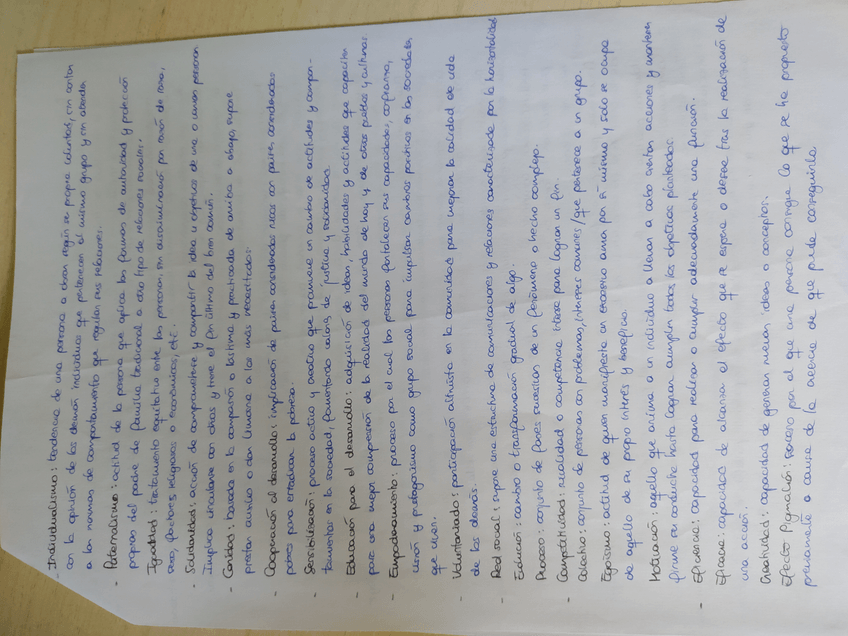 - Individualismo: tendencia de una persona a obrar según su propia voluntad, sin contar
con la opinión de los demás individuos que pertenecen al mismo grupo y sin atender
a las normas de comportamiento que regulan sus relaciones.
- Paternalismo: actitud de la persona que aplica las formas de autoridad y protección
propias del padre de familia tradicional a otro tipo de relaciones sociales.
Igualdad: tratamiento equitativo entre las personas sin discriminación por razón de raza,
sexo, factores religiosos o económicos, etc.
- Solidaridad: acción de comprometerse y compartir la idea u objetivos de una o varias personas
Implica vincularse con otros y tiene el fin último del bien común.
- Caridad: basada en la compasión o lástima y practicada de arriba a abajo, supone
prestar auxilio o dar limosna a los más necesitados.
- Cooperación al desarrollo: implicación de países considerados ricos con países considerados
pobres para erradicar la pobreza.
Sensibilización: proceso activo y creativo que promueve un cambio de actitudes y compor-
tamientos en la sociedad, fomentando valores de justicia y solidaridad.
- Educación para el desarrollo: adquisición de ideas, habilidades y actitudes que capacitan
para una mejor comprensión de la realidad del mundo de hoy y de otros pueblos y culturas
- Empoderamiento: proceso por el cual las personas fortalecen sus capacidades, confianza,
visión y protagonismo como grupo social para impulsar cambios positivos en las sociedades
que viven.
- Voluntariado: participación altruista en la comunidad para mejorar la calidad de vida
de los demás.
- Red social: supone una estructura de comunicaciones y relaciones caracterizada por la horizontalidad
Evolución: cambio o transformación gradual de algo.
Proceso: conjunto de fases sucesivas de un fenómeno o hecho complejo.
- Competitividad: rivalidad o competencia intensa para lograr un fin.
- Colectivo: conjunto de personas con problemas/intereses comunes/que pertenece a un grupo.
- Egoísmo: actitud de quien manifiesta un excesivo amor por sí mismo y solo se ocupa
de aquello de su propio interés y beneficio.
Motivación: aquello que anima a un individuo a llevar a cabo ciertas acciones y mantener
firme su conducta hasta lograr cumplir todos los objetivos planteados.
- Eficiencia: capacidad para realizar o cumplir adecuadamente una función.
- Eficacia: capacidad de alcanzar el efecto que se espera o desea tras la realización de
una acción.
Creatividad: capacidad de generar nuevas ideas o conceptos.
Efecto Pigmalión: proceso por el que una persona consigue lo que se ha propuesto
previamente a causa de la creencia de que puede conseguirlo.